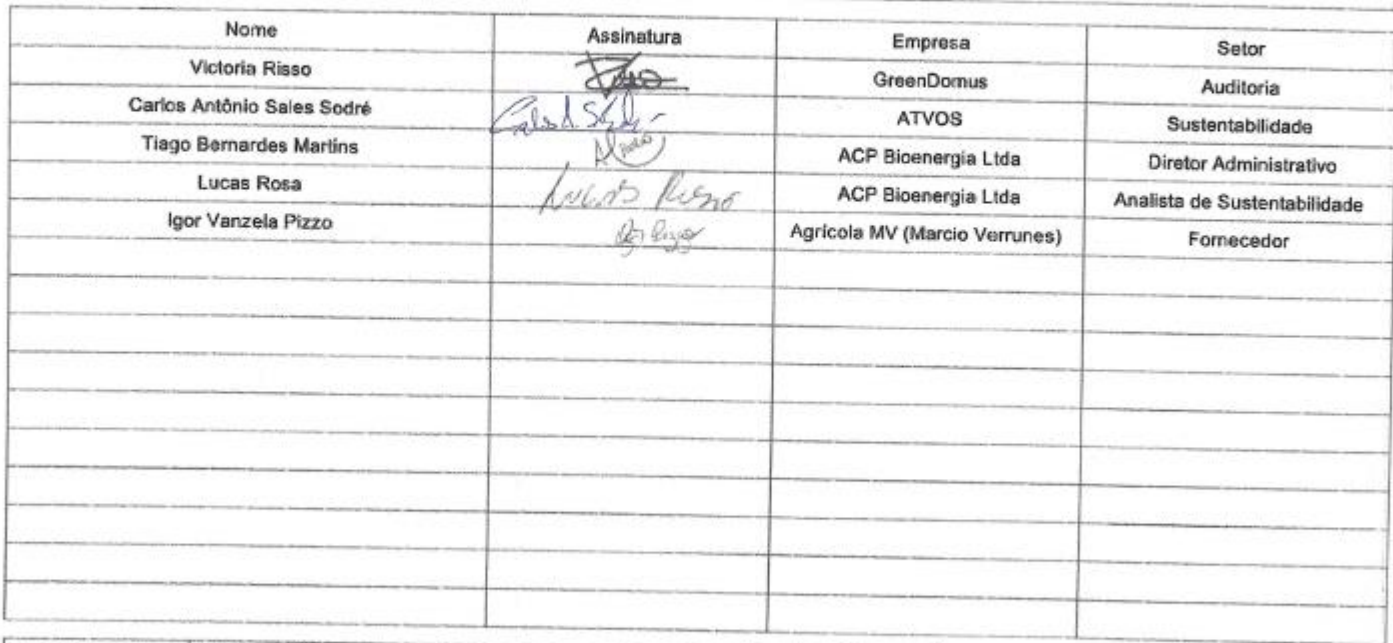 Nome Assinatura Empresa Setor
Victoria Risso GreenDomus Auditoria
Carlos Antônio Sales Sodré ATVOS Sustentabilidade
Tiago Bernardes Martins ACP Bioenergia Ltda Diretor Administrativo
Lucas Rosa ACP Bioenergia Ltda Analista de Sustentabilidade
Igor Vanzela Pizzo Agrícola MV (Marcio Verrunes) Fornecedor